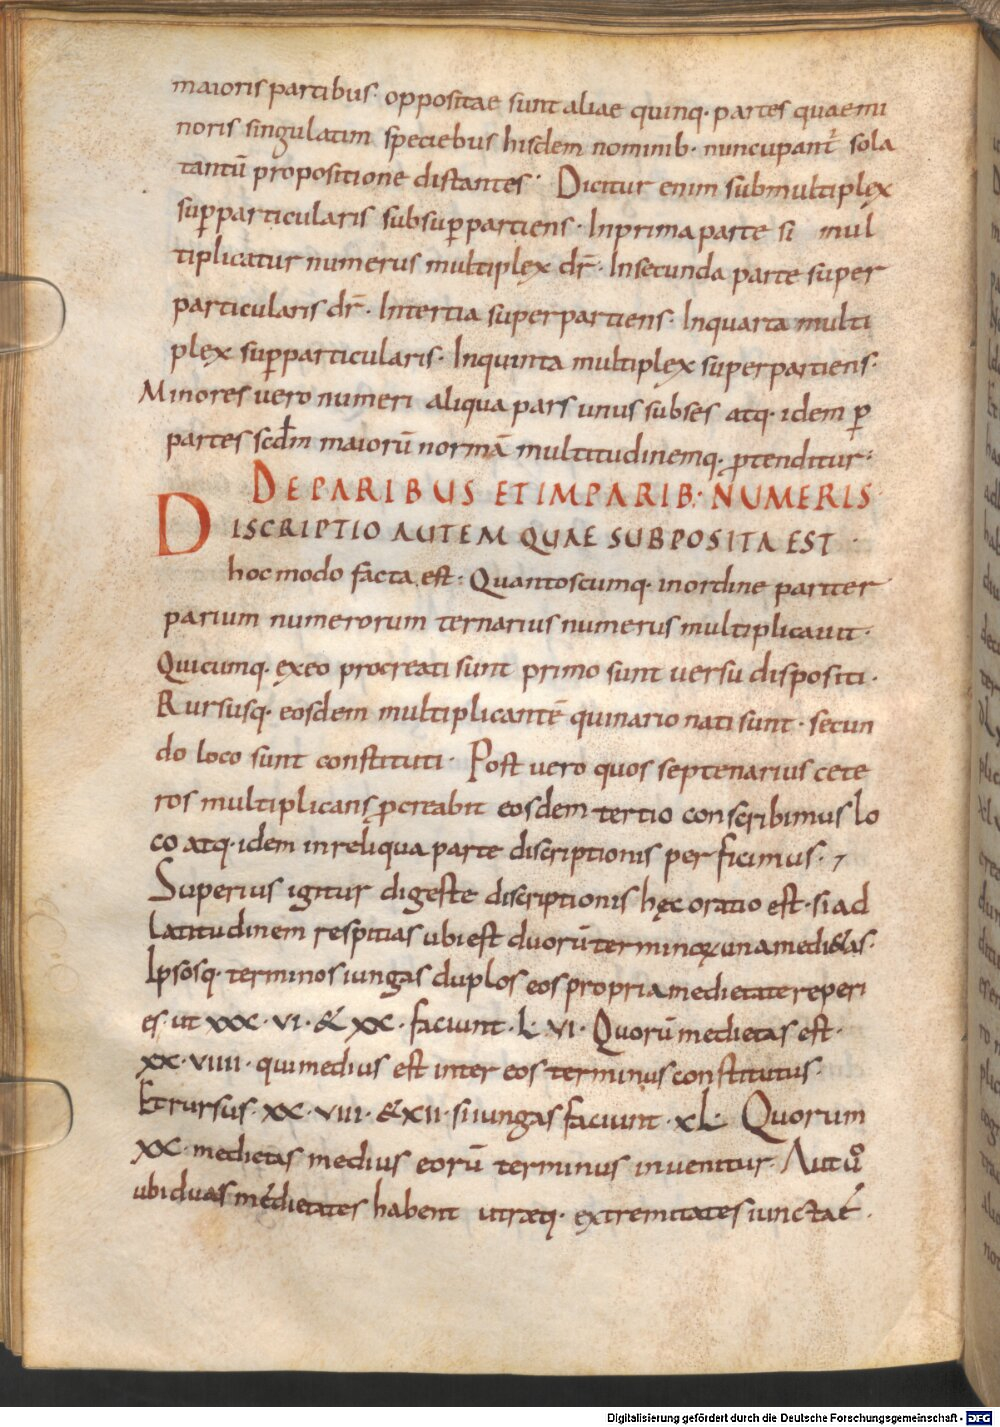 maioris partibus· oppositae sunt aliae quinq· partes quae mi
noris singulatim speciebus hisdem nominib· nuncupant̄ sola
tantū propositione distantes· Dicitur enim submultiplex
suꝑparticularis subsuꝑpartiens· Inprima parte si mul
tiplicatur numerus multiplex dr̄· Insecunda parte super
particularis dr̄· Intertia superpartiens· Inquarta multi
plex suꝑparticularis· Inquinta multiplex superpartiens·
Minores vero numeri aliqua pars unus subses atq· idem ꝑ
partes scdm̄ maiorū normā multitudinemq· ꝓtenditur·
DE PARIBUS ET IMPARIB· NUMERIS
DISCRIPTIO AUTEM QUAE SUBPOSITA EST·
hocmodo facta est· Quantoscumq· inordine pariter
parium numerorum ternarius numerus multiplicavit·
Quicumq· exeo procreati sunt primo sunt versu dispositi·
Rursusq· eosdem multiplicantē quinario nati sunt· secun
do loco sunt constituti· Post vero quos septenarius cete
ros multiplicans ꝓcreabit eosdem tertio conscribimus lo
co atq· idem inreliqua parte discriptionis perficimus·
Superius igitur digeste discriptionis hęc oratio est· si ad
latitudinem respitias ubi est duorū terminoꝝ una medi&as·
Ipsosq· terminos iungas duplos eos propria medietate reperi
es· ut xxx·vi·& xx· faciunt·L·vi· Quorū medietas est·
xx·viiii· qui medius est inter eos terminus constitutus·
Et rursus·xx·viii·&xii·si iungas faciunt·xL· Quorum
xx· medietas medius eorū terminus invenitur· Aut uͦ
ubi duas medietates habent utræq· extremitates iunctae·
Digitalisierung gefördert durch die Deutsche Forschungsgemeinschaft - DFG